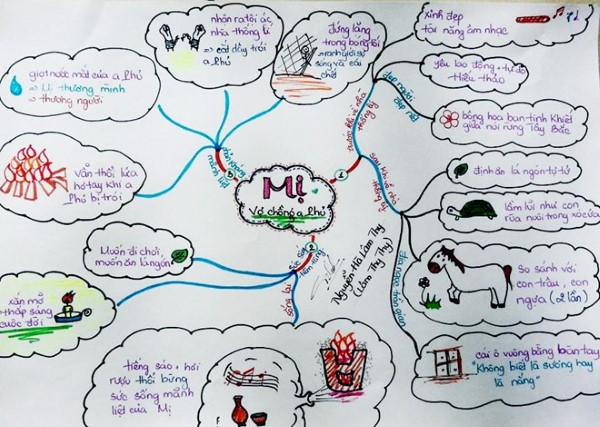 Mị
Vợ chồng a Phủ
1
trước khi về nhà
thống lý
đẹp người
đẹp nết
xinh đẹp
tài năng âm nhạc
yêu lao động + tự do
hiếu thảo
bông hoa ban tinh khiết
giữa núi rừng Tây Bắc
sau khi về nhà
thống lý
định ăn lá ngón tự tử
lầm lũi như con
rùa nuôi trong xó cửa
So sánh với
con trâu, con
ngựa (2 lần)
cái ô vuông bằng bàn tay
"Không biết là sương hay
là nắng"
2
sức sống
tiềm tàng
sống lại
tiếng sáo + hơi
rượu thổi bừng
sức sống mãnh
liệt của Mị
xắn mỡ
thắp sáng
cuộc đời
Muốn đi chơi,
muốn ăn lá ngón
3
phản kháng
mãnh liệt
Vẫn thổi lửa
hơ tay khi a
Phủ bị trói
giọt nước mắt của a Phủ
⇒ Mị thương mình
⇒ thương người
nhận ra tội ác
nhà thống lí
⇒ cắt dây trói
a Phủ
đứng lặng
trong bóng tối
ranh giới sự
sống và cái
chết
Nguyễn Hà Lâm Thy
(Lâm Thy Thy)